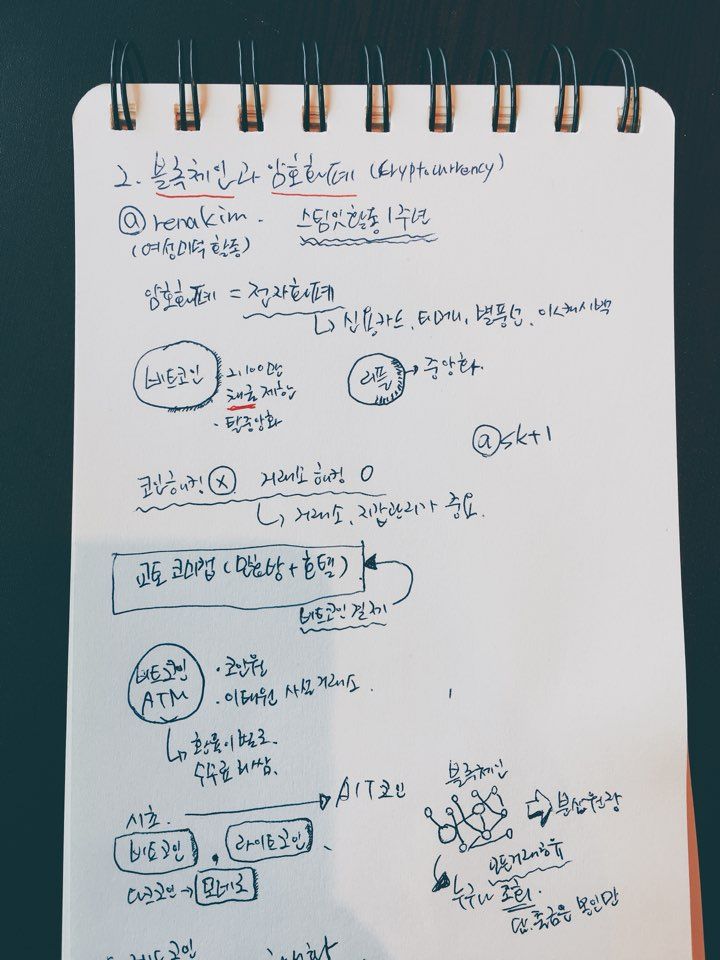 2. 블록체인과 암호화폐 (cryptocurrency)
@renakim. 스팀잇활동 1주년
(여성미덕 활동)
암호화폐 = 전자화폐
↳ 신용카드, 티머니, 별풍선,
비트코인
2100만
채굴 제한
· 탈중앙화
리플 → 중앙화.
@sk+1
코인해킹 ⓧ. 거래소 해킹 O
↳ 거래소, 지갑관리가 중요.
교토 코미캡 (만화방 + 호텔)
비트코인 결제
비트코인
ATM
· 코인원
· 이태원 사설거래소.
↳ 환율이 별로.
수수료 비쌈.
시초 → AIT코인
비트코인, 라이트코인.
다크코인 → 모네로
블록체인
⇨ 분산원장
모든거래공유
누구나 조회.
단, 출금은 본인만